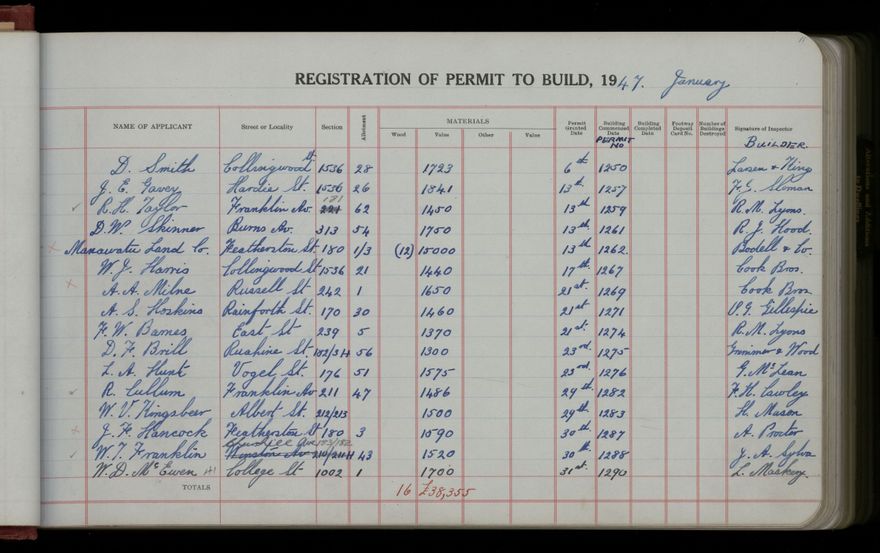 REGISTRATION OF PERMIT TO BUILD, 1947. January
NAME OF APPLICANT Street or Locality Section Allotment MATERIALS Wood Value Other Value Permit Granted Date Building Commenced Date PERMIT NO Building Completed Date Footway Deposit Card No. Number of Buildings Destroyed Signature of Inspector BUILDER
D. Smith Collingwood St. 1536 28 1723 6th 1250 Larsen & King
J. E. Gaver Hardie St. 1536 26 1841 13th 1257 F. G. Sloman
R. H. Taylor Franklin Av. 221 181 62 1450 13th 1259 R. M. Lyons.
D. W. Skinner Burns Av. 313 54 1750 13th 1261 R. J. Hood.
Manawatu Land Co. Featherston St 180 1/3 (12) 15000 13th 1262. Bodell & Co.
W. J. Harris Collingwood St 1536 21 1440 17th 1267 Cook Bros.
A. A. Milne Russell St. 242 1 1650 21st 1269 Cook Bros
A. S. Hoskins Rainforth St. 170 30 1460 21st 1271 P. G. Gillespie
F. W. Barnes East St 239 5 1370 21st. 1274 R. M. Lyons
D. F. Brill Ruahine St. 56 1300 23rd. 1275 Grimmer & Wood
L. A. Hunt Vogel St. 176 51 1575 23rd. 1276 G. McLean
R. Cullum Franklin Av 211 47 1486 29th 1282 F. H. Cawley
W. V. Kingsbeer Albert St. 212/213 1500 29th 1283 H. Mason
J. F. Hancock Featherston St 180 3 1590 30th 1287 A. Proctor
W. T. Franklin Winston Av 43 1520 30th 1288 J. A. Sylva
W. D. McEwen College St 1002 1 1700 31st 1290 L. Maskery.
TOTALS 16 £38,355